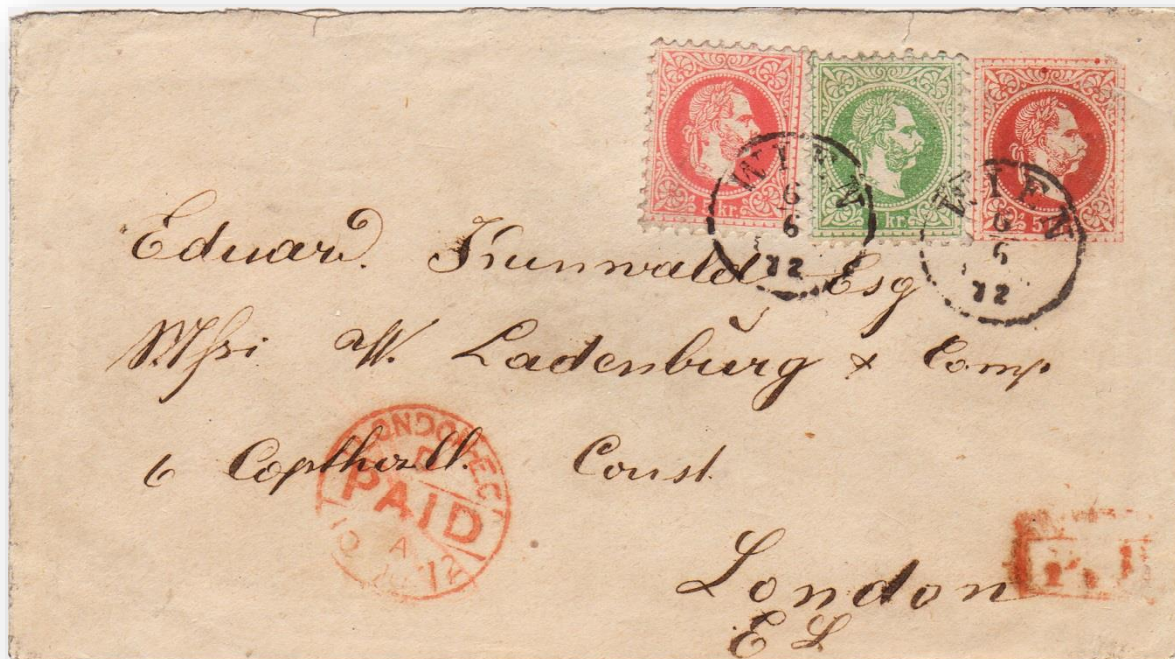 5 kr.
5 kr.
5
WIEN
6
6
72
WIEN
6
6
72
Eduard. Kunwald Esq
W. Ladenburg & Comp
6 Copthall. Court
London
E
LONDON-EC
PAID
A
72